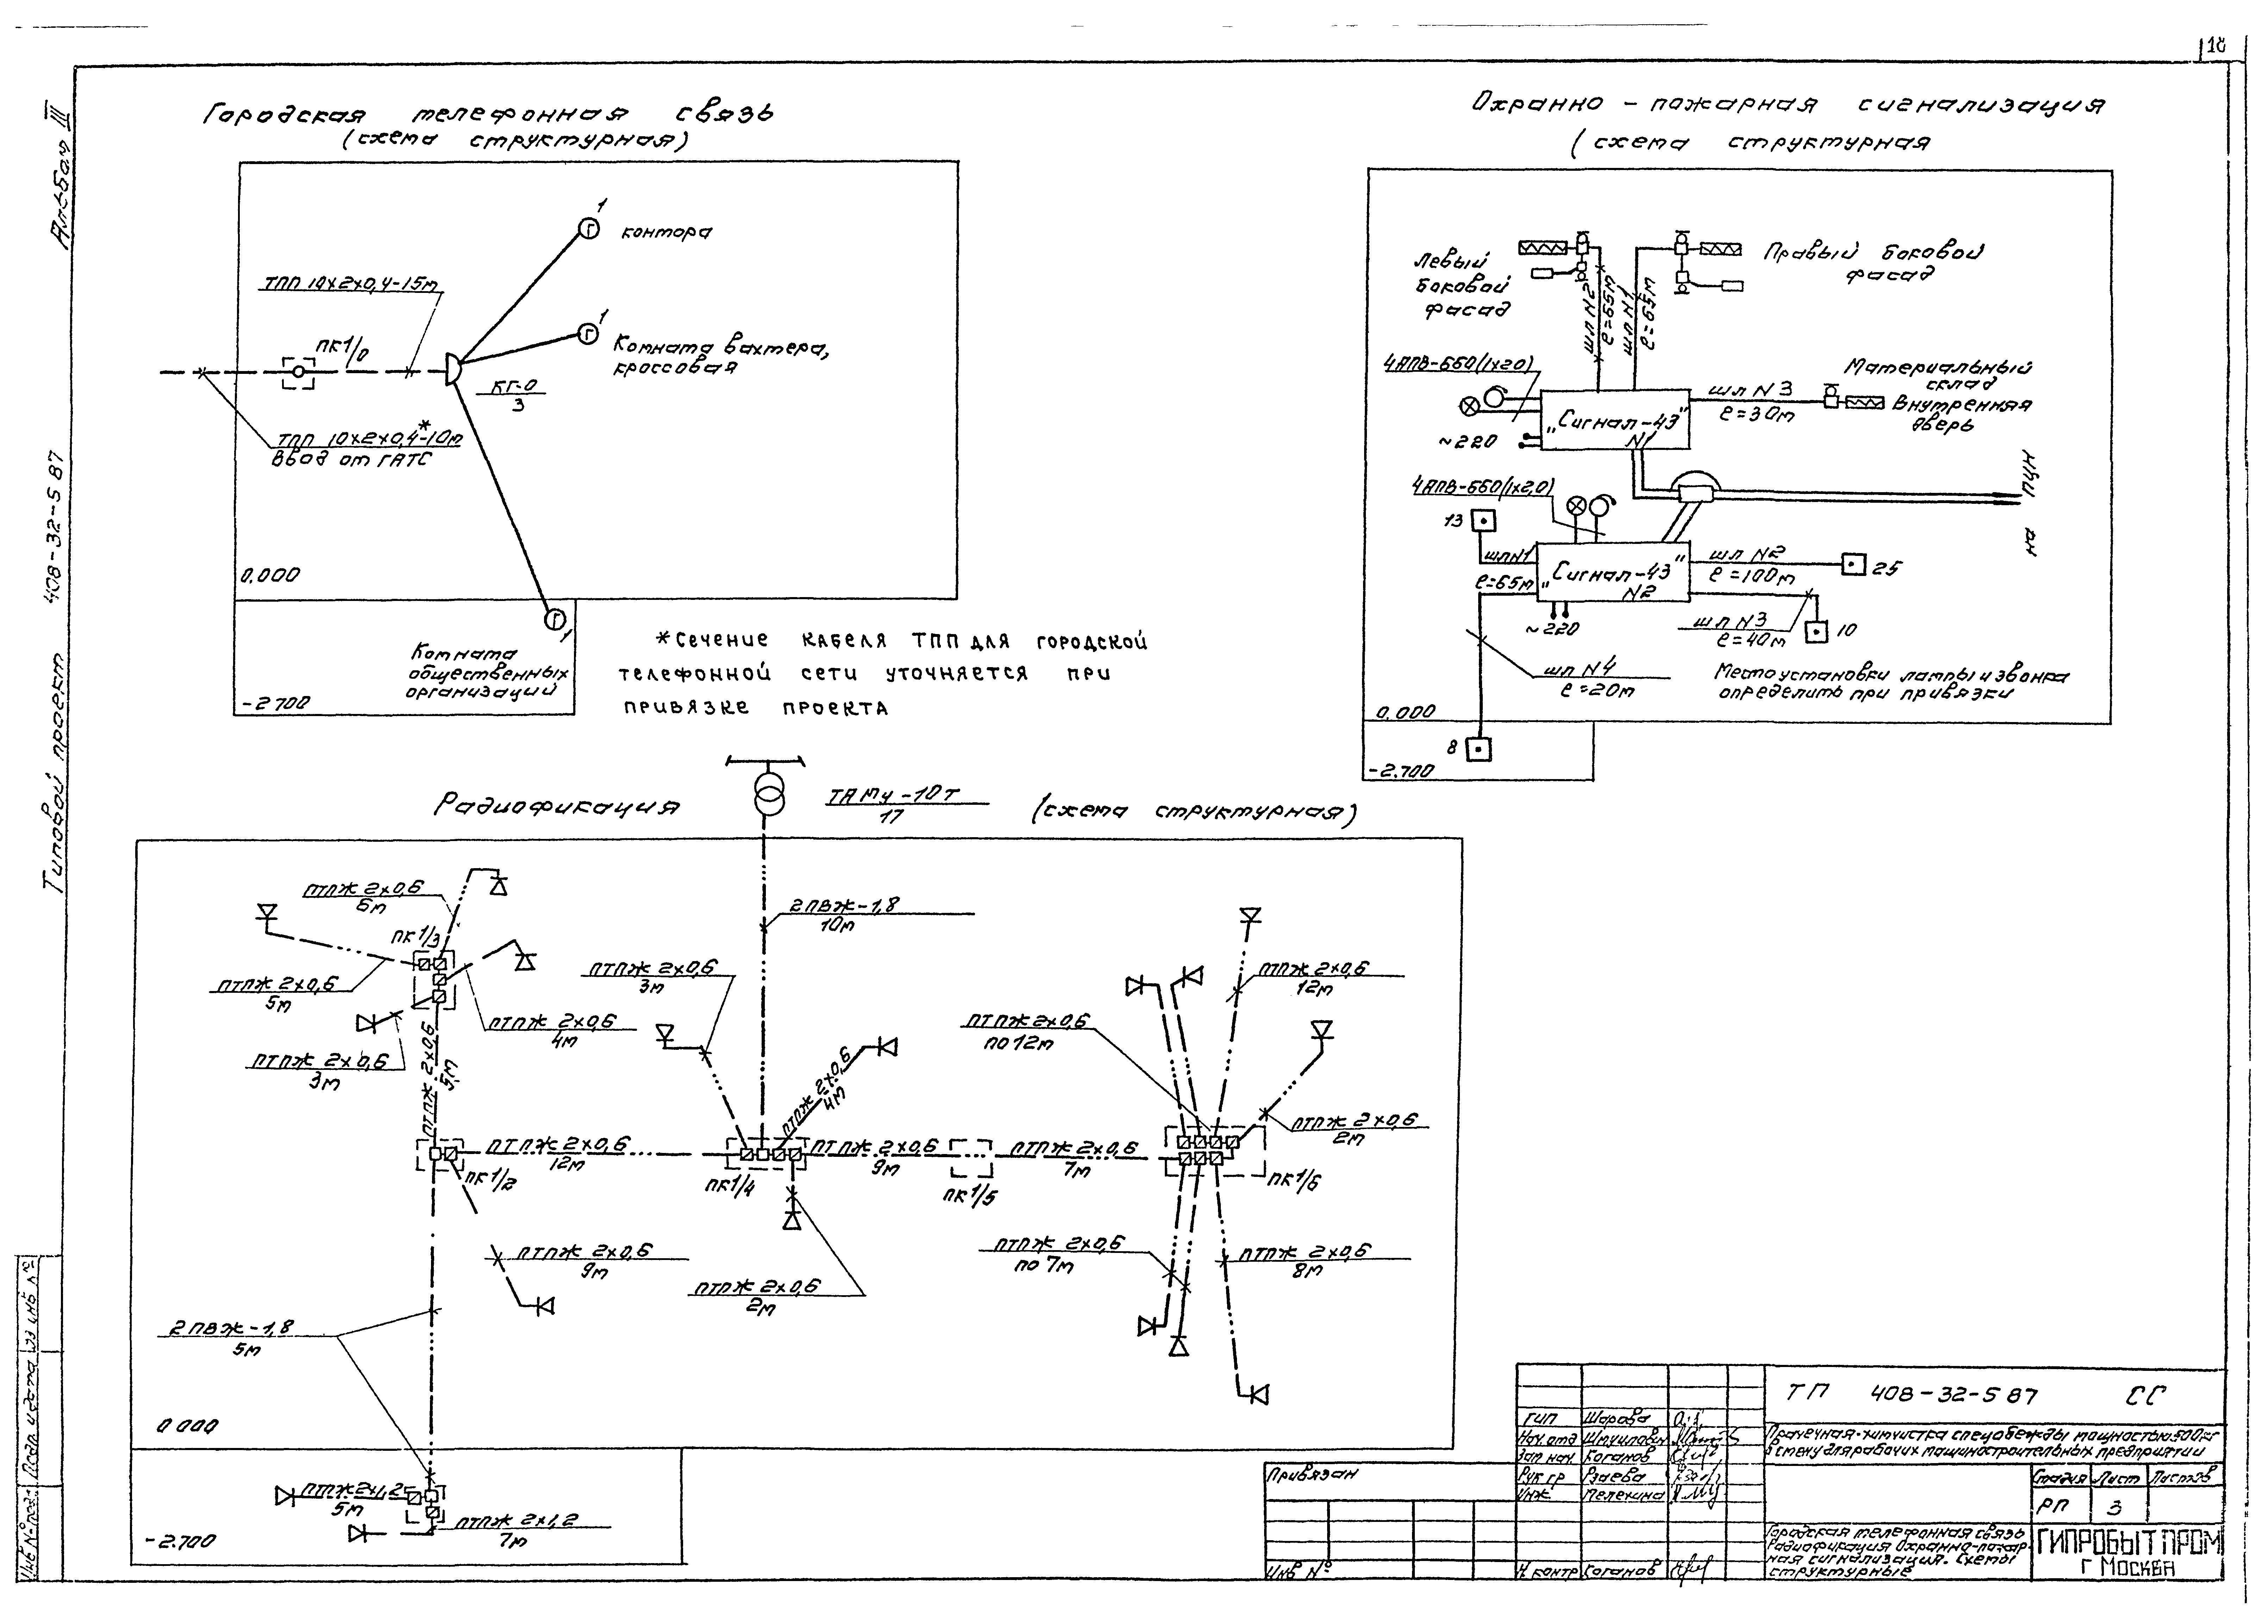 18
Альбом III
Типовой проект 408-32-5 87
Городская телефонная связь
(схема структурная)
1
контора
ТПП 10х2х0,4-15м
1
Комната вахтера,
кроссовая
ПК1/0
КГ-0
3
ТПП 10х2х0,4-10м*
Ввод от ГАТС
0,000
1
Комната
общественных
организаций
-2 700
*Сечение кабеля ТПП для городской
телефонной сети уточняется при
привязке проекта
Охранно-пожарная сигнализация
(схема структурная
Левый
боковой
фасад
шл N2
ℓ=65м
шл N1
ℓ=65м
Правый боковой
фасад
4АПВ-660(1х2.0)
~220
„Сигнал-43"
N1
шл N3
ℓ=30м
Материальный
склад
Внутренняя
дверь
на ПЦН
4АПВ-660(1х2,0)
13
шл N1
ℓ=65м
„Сигнал-43"
N2
~220
шл N2
ℓ=100м
25
шл N3
ℓ=40м
10
шл N4
ℓ=20м
Место установки лампы и звонка
определить при привязки
0,000
8
-2.700
Радиофикация
ТАМУ-10Т
17
(схема структурная)
ПТПЖ 2х0,6
6м
ПК1/3
ПТПЖ 2х0,6
5м
ПТПЖ 2х0,6
4м
ПТПЖ 2х0,6
3м
ПТПЖ 2х0,6
5м
ПТПЖ 2х0,6
12м
ПК1/2
ПТПЖ 2х0,6
9м
2ПВЖ-1,8
5м
2ПВЖ-1,8
10м
ПТПЖ 2х0,6
3м
ПТПЖ 2х0,6
4м
ПК1/4
ПТПЖ 2х0,6
9м
ПТПЖ 2х0,6
2м
ПК1/5
ПТПЖ 2х0,6
7м
ПТПЖ 2х0,6
по 12м
ПТПЖ 2х0,6
12м
ПТПЖ 2х0,6
2м
ПК1/6
ПТПЖ 2х0,6
по 7м
ПТПЖ 2х0,6
8м
0 000
ПТПЖ 2х1,2
5м
ПТПЖ 2х1,2
7м
-2.700
Инв № подл
Подп и дата
Привязан
Инв №
ГИП Шарова
Нач. отд Шмуилович
Зам нач. Коганов
Рук гр Рзаева
Инж Мелехина
Н контр Коганов
ТП 408-32-5 87 СС
Прачечная-химчистка спецодежды мощностью 500кг
в смену для рабочих машиностроительных предприятий
Стадия Лист Листов
РП 3
Городская телефонная связь
Радиофикация Охранно-пожар-
ная сигнализация. Схемы
структурные
ГИПРОБЫТПРОМ
г Москва